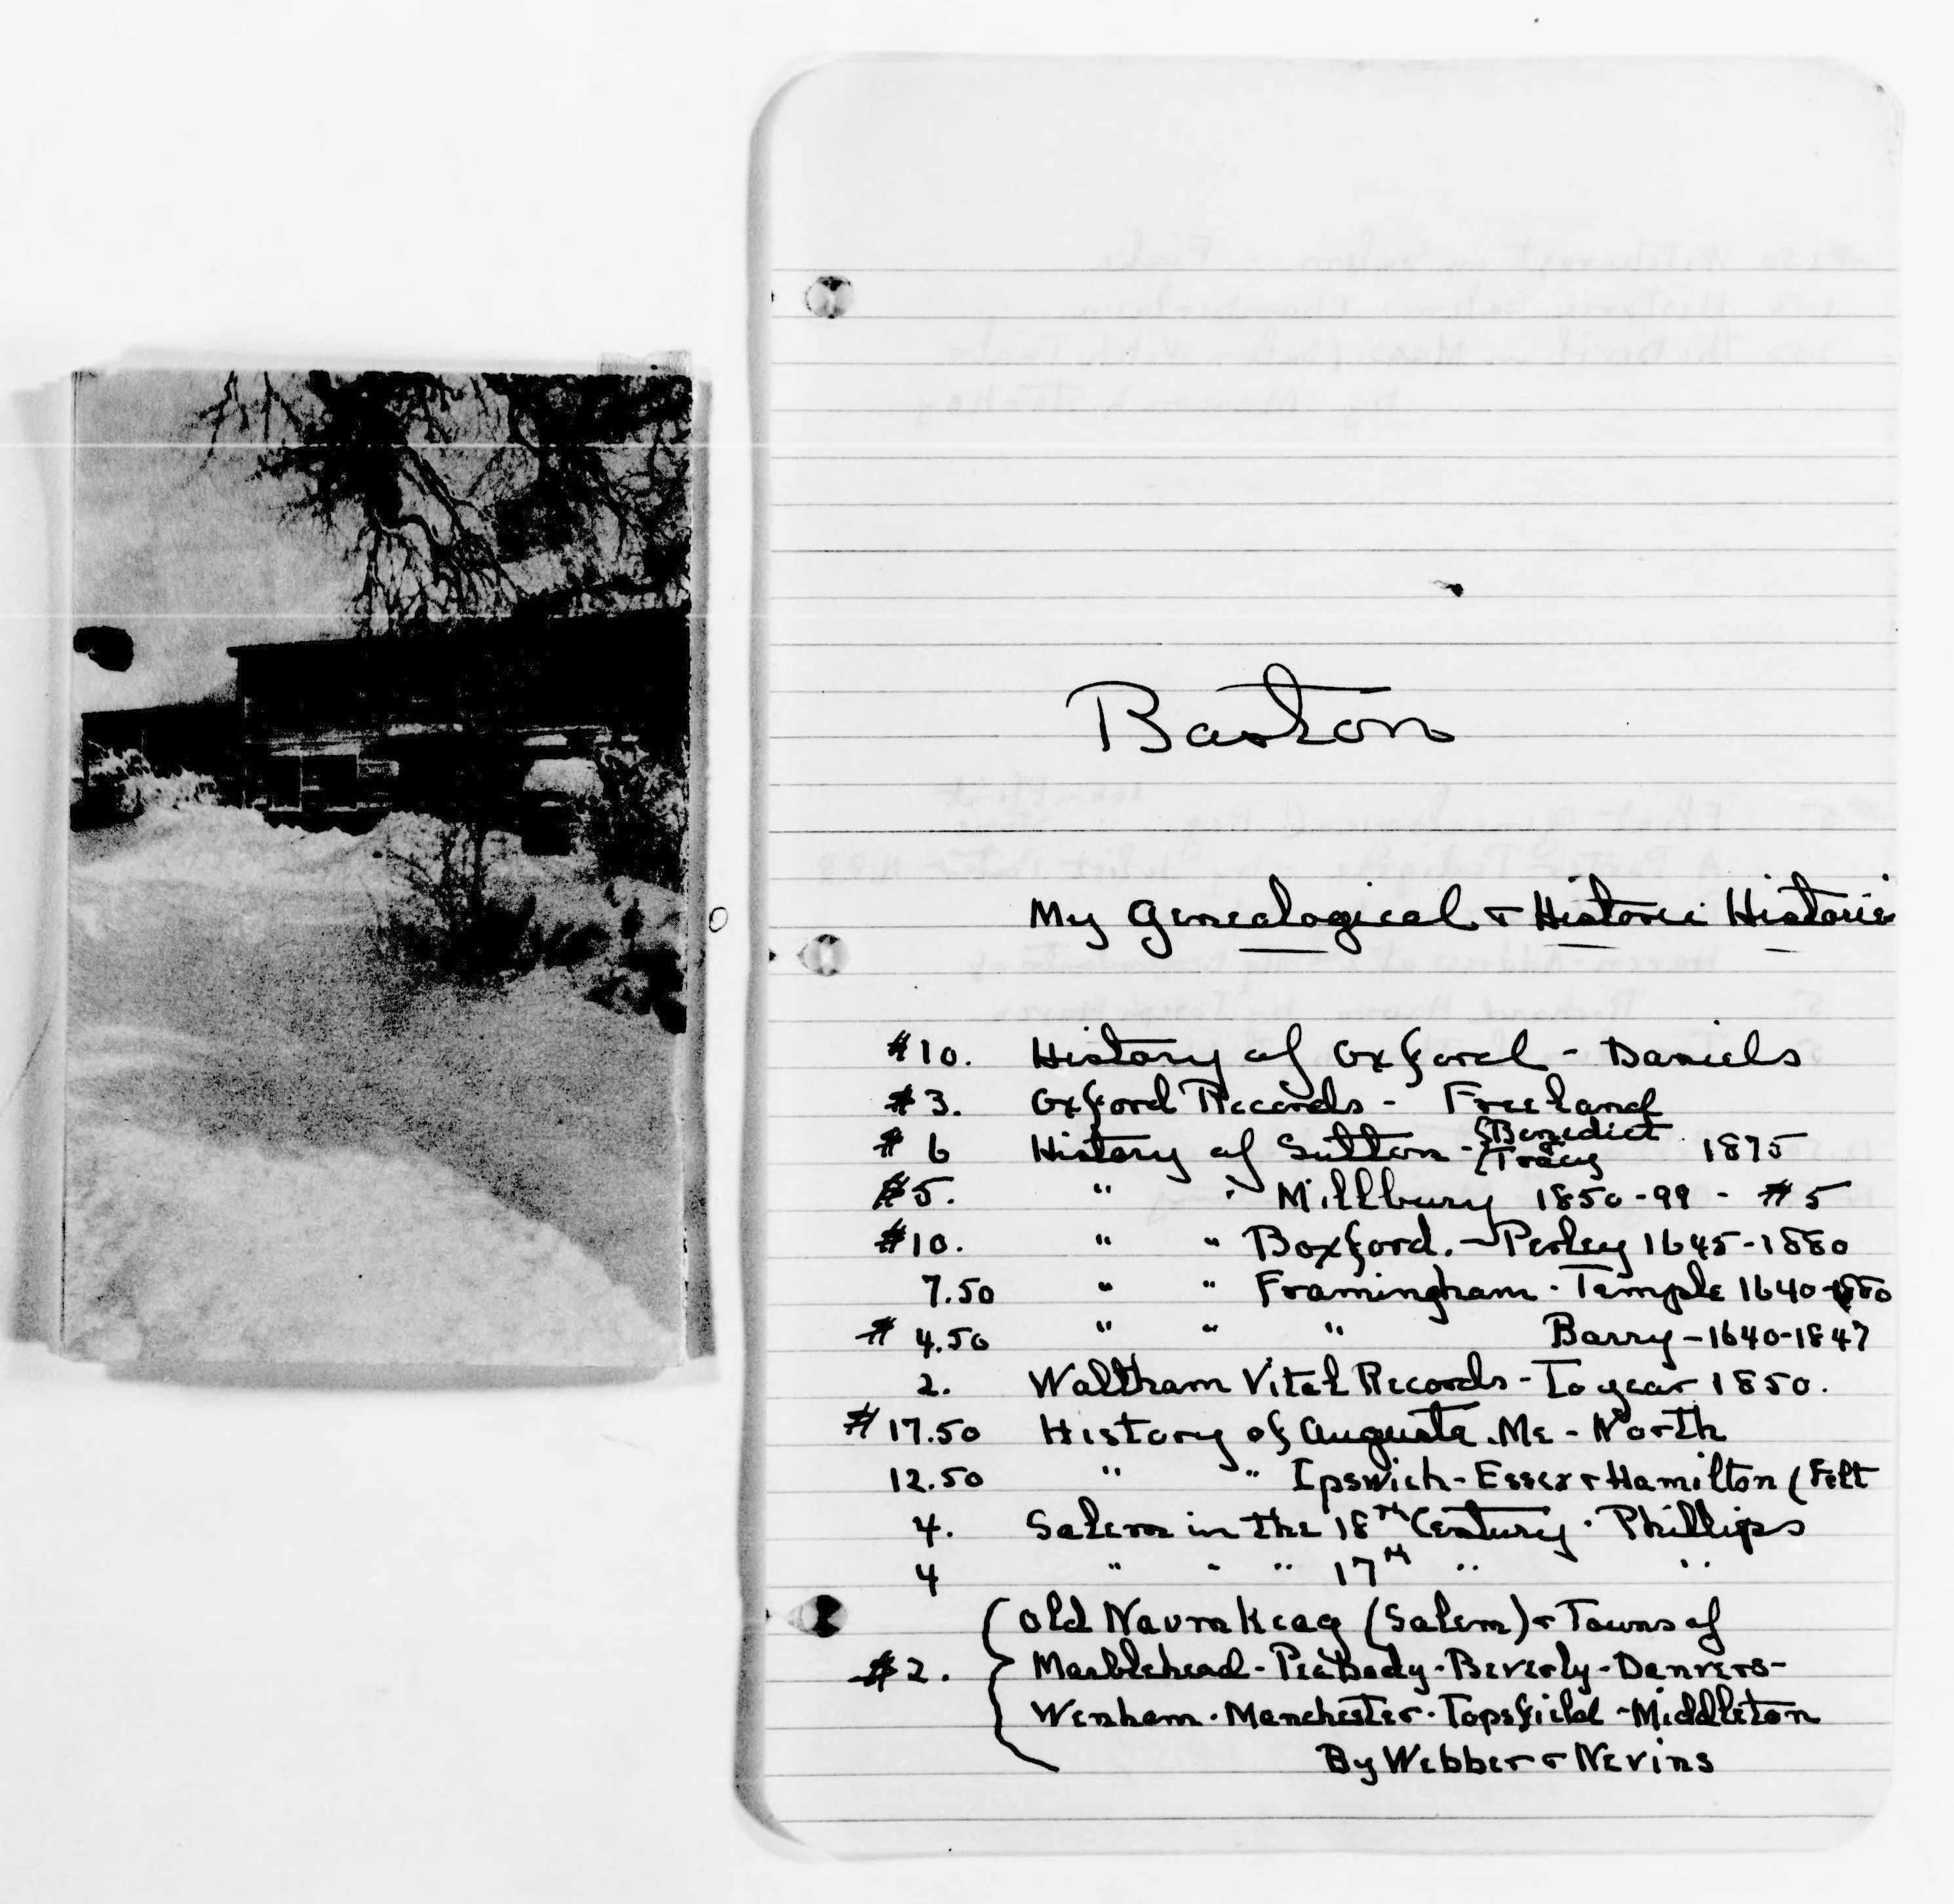 Barton
My Genealogical & Historic Histories
#10. History of Oxford - Daniels
#3. Oxford Records - Freeland
#6 History of Sutton - { Benedict
{ Tracy 1875
$5. " " Millbury 1850-99 - #5
#10. " " Boxford. - Perley 1645-1880
7.50 " " Framingham - Temple 1640-1880
# 4.50 " " " Barry - 1640-1847
2. Waltham Vital Records - To year 1850.
# 17.50 History of Augusta. Me - North
12.50 " " Ipswich - Essex & Hamilton (Felt
4. Salem in the 18th Century - Phillips
4 " " " 17th " "
Old Naumkeag (Salem) & Towns of
$2. Marblehead - Peabody - Beverly - Danvers -
Wenham - Manchester - Topsfield - Middleton
By Webber & Nevins